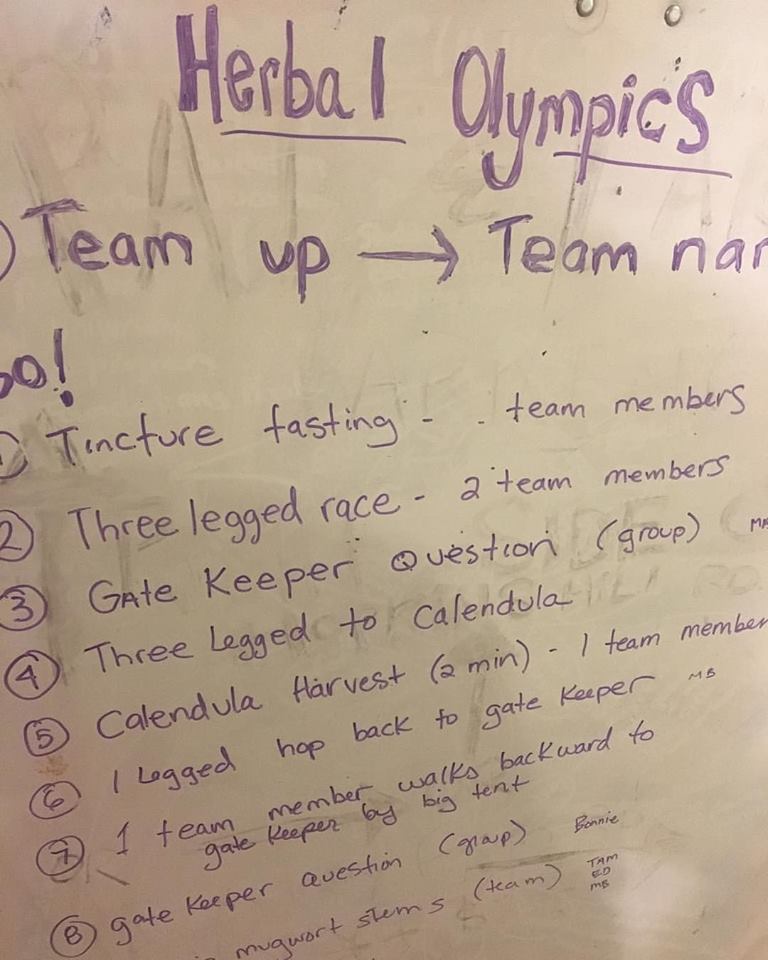 Herbal Olympics
Team up → Team nar
Go!
① Tincture tasting - - team members
② Three legged race - 2 team members
③ GAte Keeper Question (group) MB
④ Three Legged to Calendula
⑤ Calendula Harvest (2 min) - 1 team member
⑥ 1 Legged hop back to gate Keeper MB
⑦ 1 team member walks backward to
gate Keeper by big tent
⑧ gate Keeper Question (group) Bonnie
mugwort stems (team) TAM
ED
MB